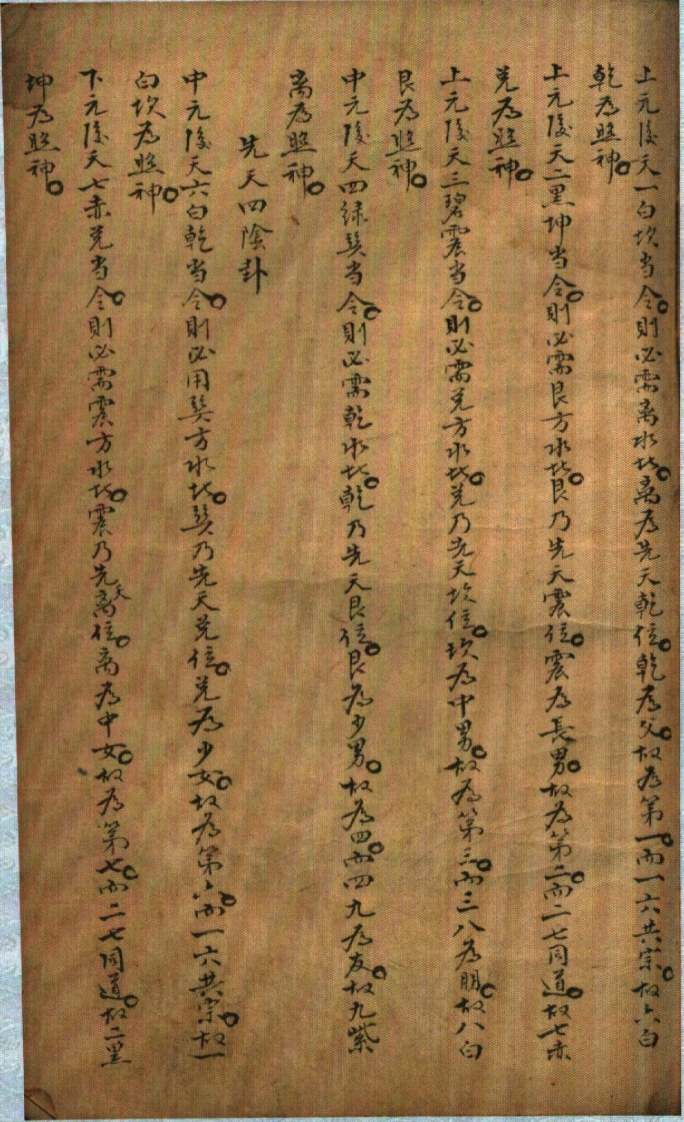 上元後天一白坎当令。則必需离水非。离為先天乾位。乾為父。故為第一。而一六共宗。故六白
乾為照神。
上元後天二黑坤当令。則必需艮方水非。艮乃先天震位。震為長男。故為第二。而二七同道。故七赤
兑為照神。
上元後天三碧震当令。則必需兑方水非。兑乃先天坎位。坎為中男。故為第三。而三八為朋。故八白
艮為照神。
中元後天四绿巽当令。則必需乾水非。乾乃先天艮位。艮為少男。故為四。而四九為友。故九紫
离為照神。
先天四陰卦
中元後天六白乾当令。則必用巽方水非。巽乃先天兑位。兑為少女。故為第六。而一六共宗。故一
白坎為照神。
下元後天七赤兑当令。則必需震方水非。震乃先天离位。离為中女。故為第七。而二七同道。故二黑
坤為照神。